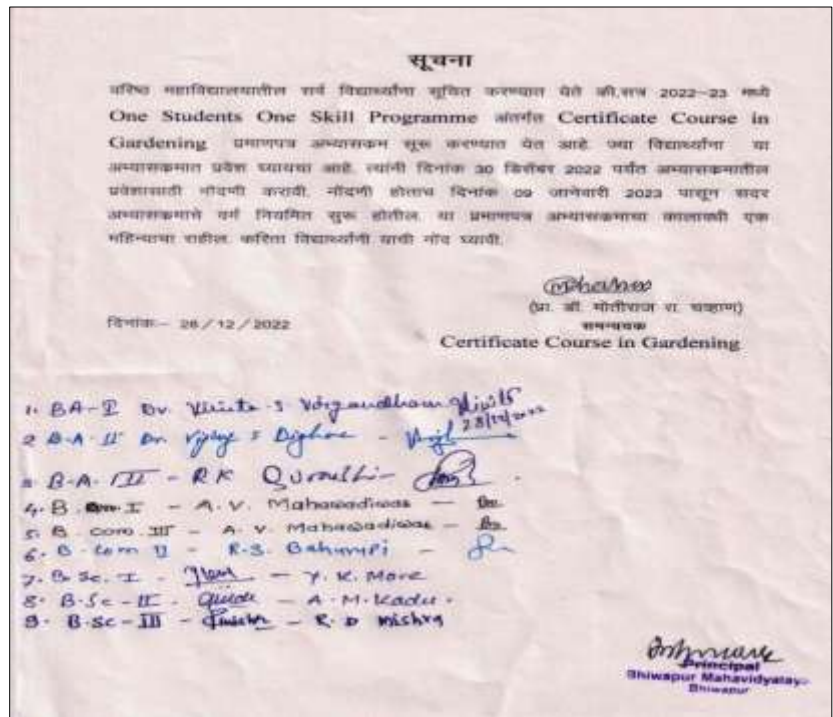 सूचना
वरिष्ठ महाविद्यालयातील सर्व विद्यार्थ्यांना सूचित करण्यात येते की,सत्र 2022-23 मध्ये
One Students One Skill Programme अंतर्गत Certificate Course in
Gardening प्रमाणपत्र अभ्यासक्रम सुरू करण्यात येत आहे. ज्या विद्यार्थ्यांना या
अभ्यासक्रमात प्रवेश घ्यायचा आहे. त्यांनी दिनांक 30 डिसेंबर 2022 पर्यंत अभ्यासक्रमातील
प्रवेशासाठी नोंदणी करावी. नोंदणी होताच दिनांक 09 जानेवारी 2023 पासून सदर
अभ्यासक्रमाचे वर्ग नियमित सुरू होतील. या प्रमाणपत्र अभ्यासक्रमाचा कालावधी एक
महिन्याचा राहील. करिता विद्यार्थ्यांनी याची नोंद घ्यावी.
(प्रा. डॉ. मोतीराज रा. चव्हाण)
दिनांक:- 26/12/2022
समन्वयक
Certificate Course in Gardening
1. BA-I Dr. S
2. B-A-II Dr. Vijay S Dighore -
3. B-A-III - RK Quraishi -
4. B. I - A. V. Mahawadiwar -
5. B. Com. III - A. V. Mahawadiwar -
6. B. Com II - R.S. Bahurupi -
7. B. Sc. I - - Y. K. More
8. B.Sc-II - - A. M. Kadu.
9. B.Sc-III - - R. D Mishra
Principal
Bhiwapur Mahavidyalay
Bhiwapur